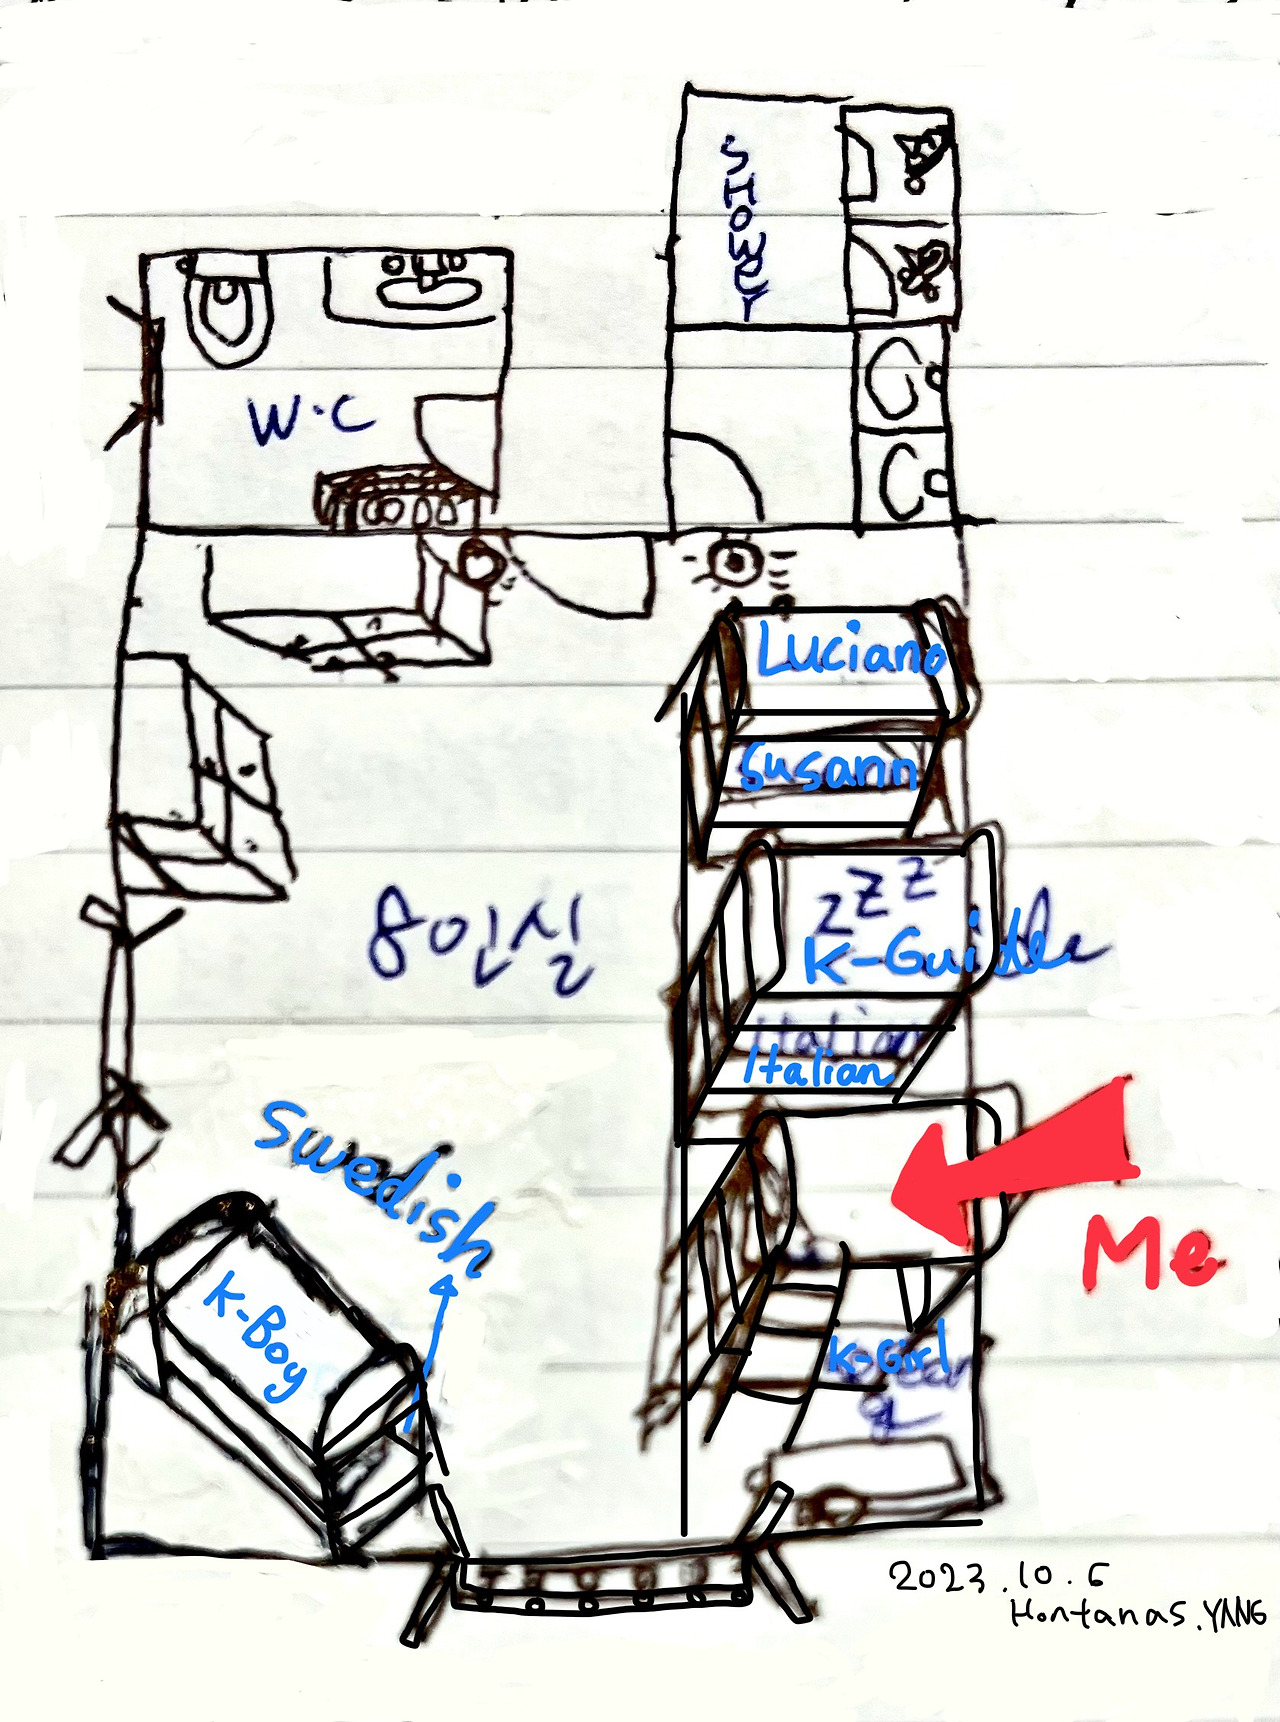 SHOWER
W.C
Luciano
Susann
zzz
K-Guide
8인실
Italian
Italian
Swedish
Me
K-Boy
K-Girl
2023.10.6
Hontanas.YANG